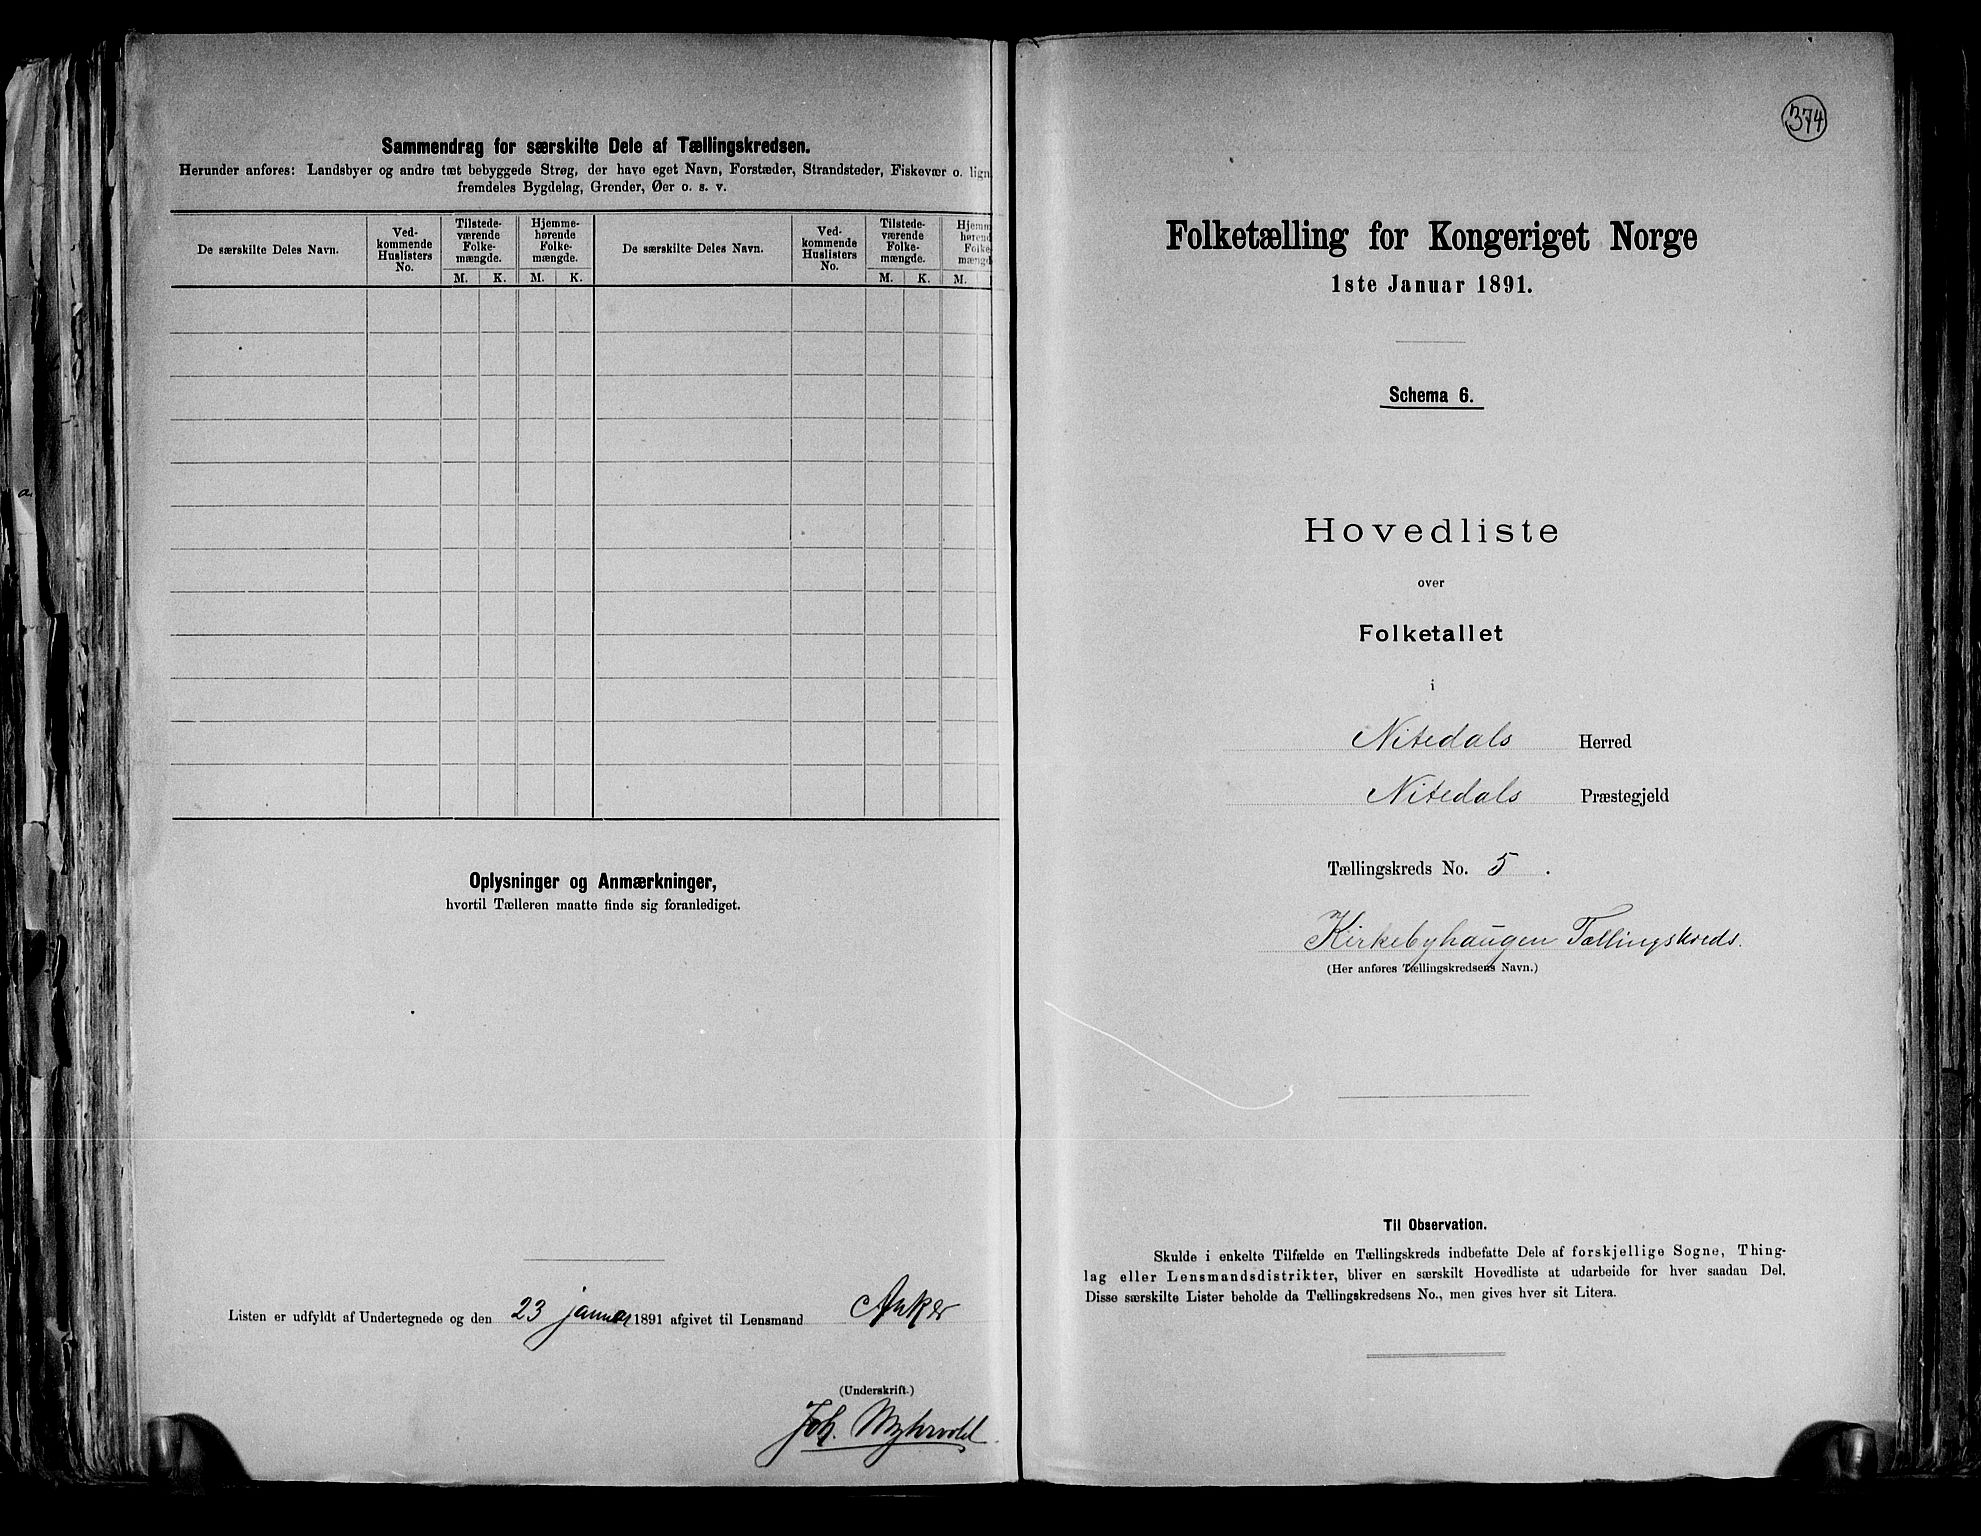 Sammendrag for særskilte Dele af Tællingskredsen.
Herunder anføres: Landsbyer og andre tæt bebyggede Strøg, der have eget Navn, Forstæder, Strandsteder, Fiskevær o. lign.
fremdeles Bygdelag, Grender, Øer o. s. v.
De særskilte Deles Navn.
Ved-
kommende
Huslisters
No.
Tilstede-
værende
Folke-
mængde.
M. K.
Hjemme-
hørende
Folke-
mængde.
M. K.
De særskilte Deles Navn.
Ved-
kommende
Huslisters
No.
Tilstede-
værende
Folke-
mængde.
M. K.
Hjemm
hørend
Folke
mængd
M.
Oplysninger og Anmærkninger,
hvortil Tælleren maatte finde sig foranlediget.
Listen er udfyldt af Undertegnede og den 23 januar 1891 afgivet til Lensmand Anker
(Underskrift.)
Joh. Myhrvold
374
Folketælling for Kongeriget Norge
1ste Januar 1891.
Schema 6.
Hovedliste
over
Folketallet
i
Nitedals Herred
Nitedals Præstegjeld
Tællingskreds No. 5.
Kirkebyhaugen Tællingskreds.
(Her anføres Tællingskredsens Navn.)
Til Observation.
Skulde i enkelte Tilfælde en Tællingskreds indbefatte Dele af forskjellige Sogne, Thing-
lag eller Lensmandsdistrikter, bliver en særskilt Hovedliste at udarbeide for hver saadan Del.
Disse særskilte Lister beholde da Tællingskredsens No., men gives hver sit Litera.